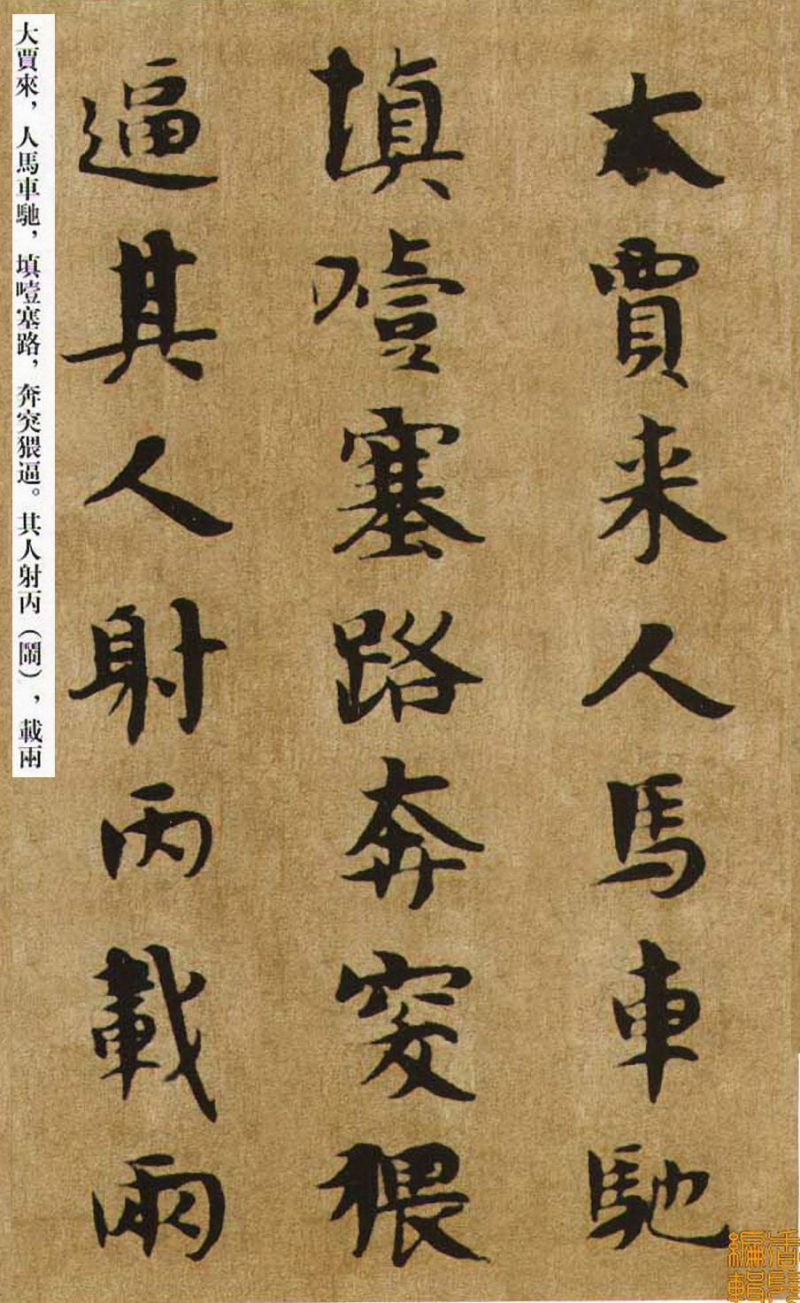 大賈来人馬車馳
填噎塞路奔突猥
逼其人射丙載兩
大賈來，人馬車馳，填噎塞路，奔突猥逼。其人射丙（鬧），載兩